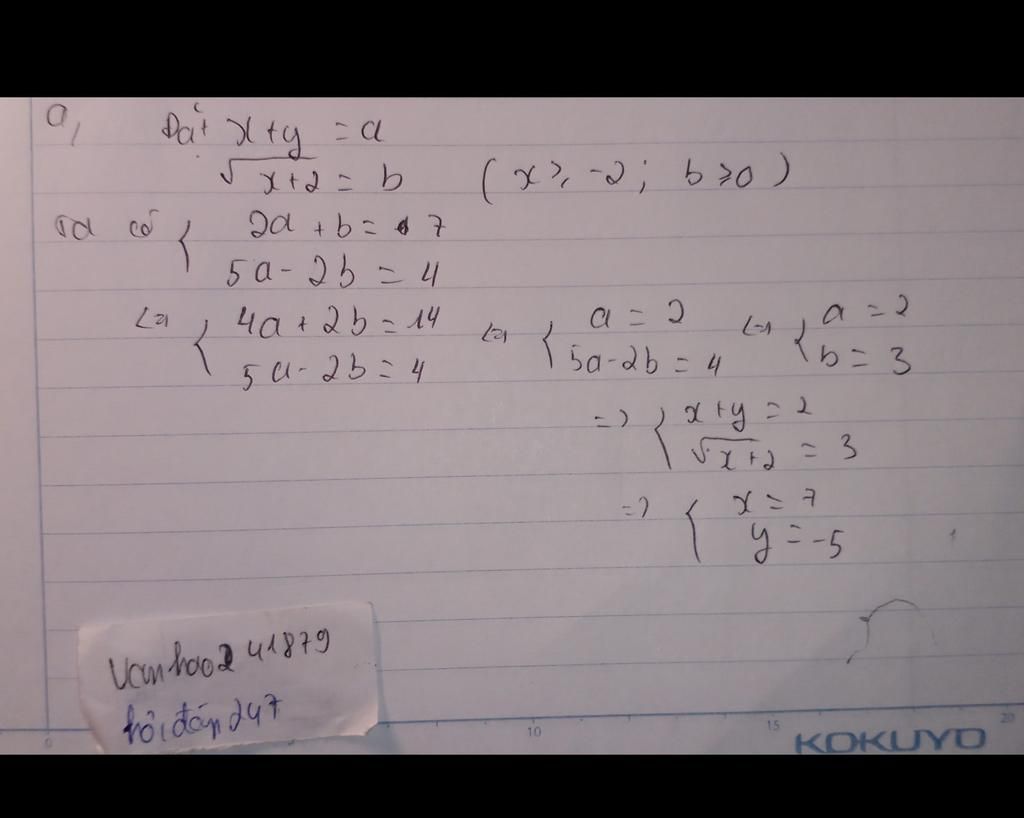 a,
Đặt x+y = a
√x+2 = b (x ≥ -2; b ≥ 0)
Ta có { 2a + b = 7
5a - 2b = 4
<=> { 4a + 2b = 14
5a - 2b = 4
<=> { a = 2
5a - 2b = 4
<=> { a = 2
b = 3
=> { x+y = 2
√x+2 = 3
=> { x = 7
y = -5
vanhao241879
hỏi đáp 247
0 10 15 20
KOKUYO